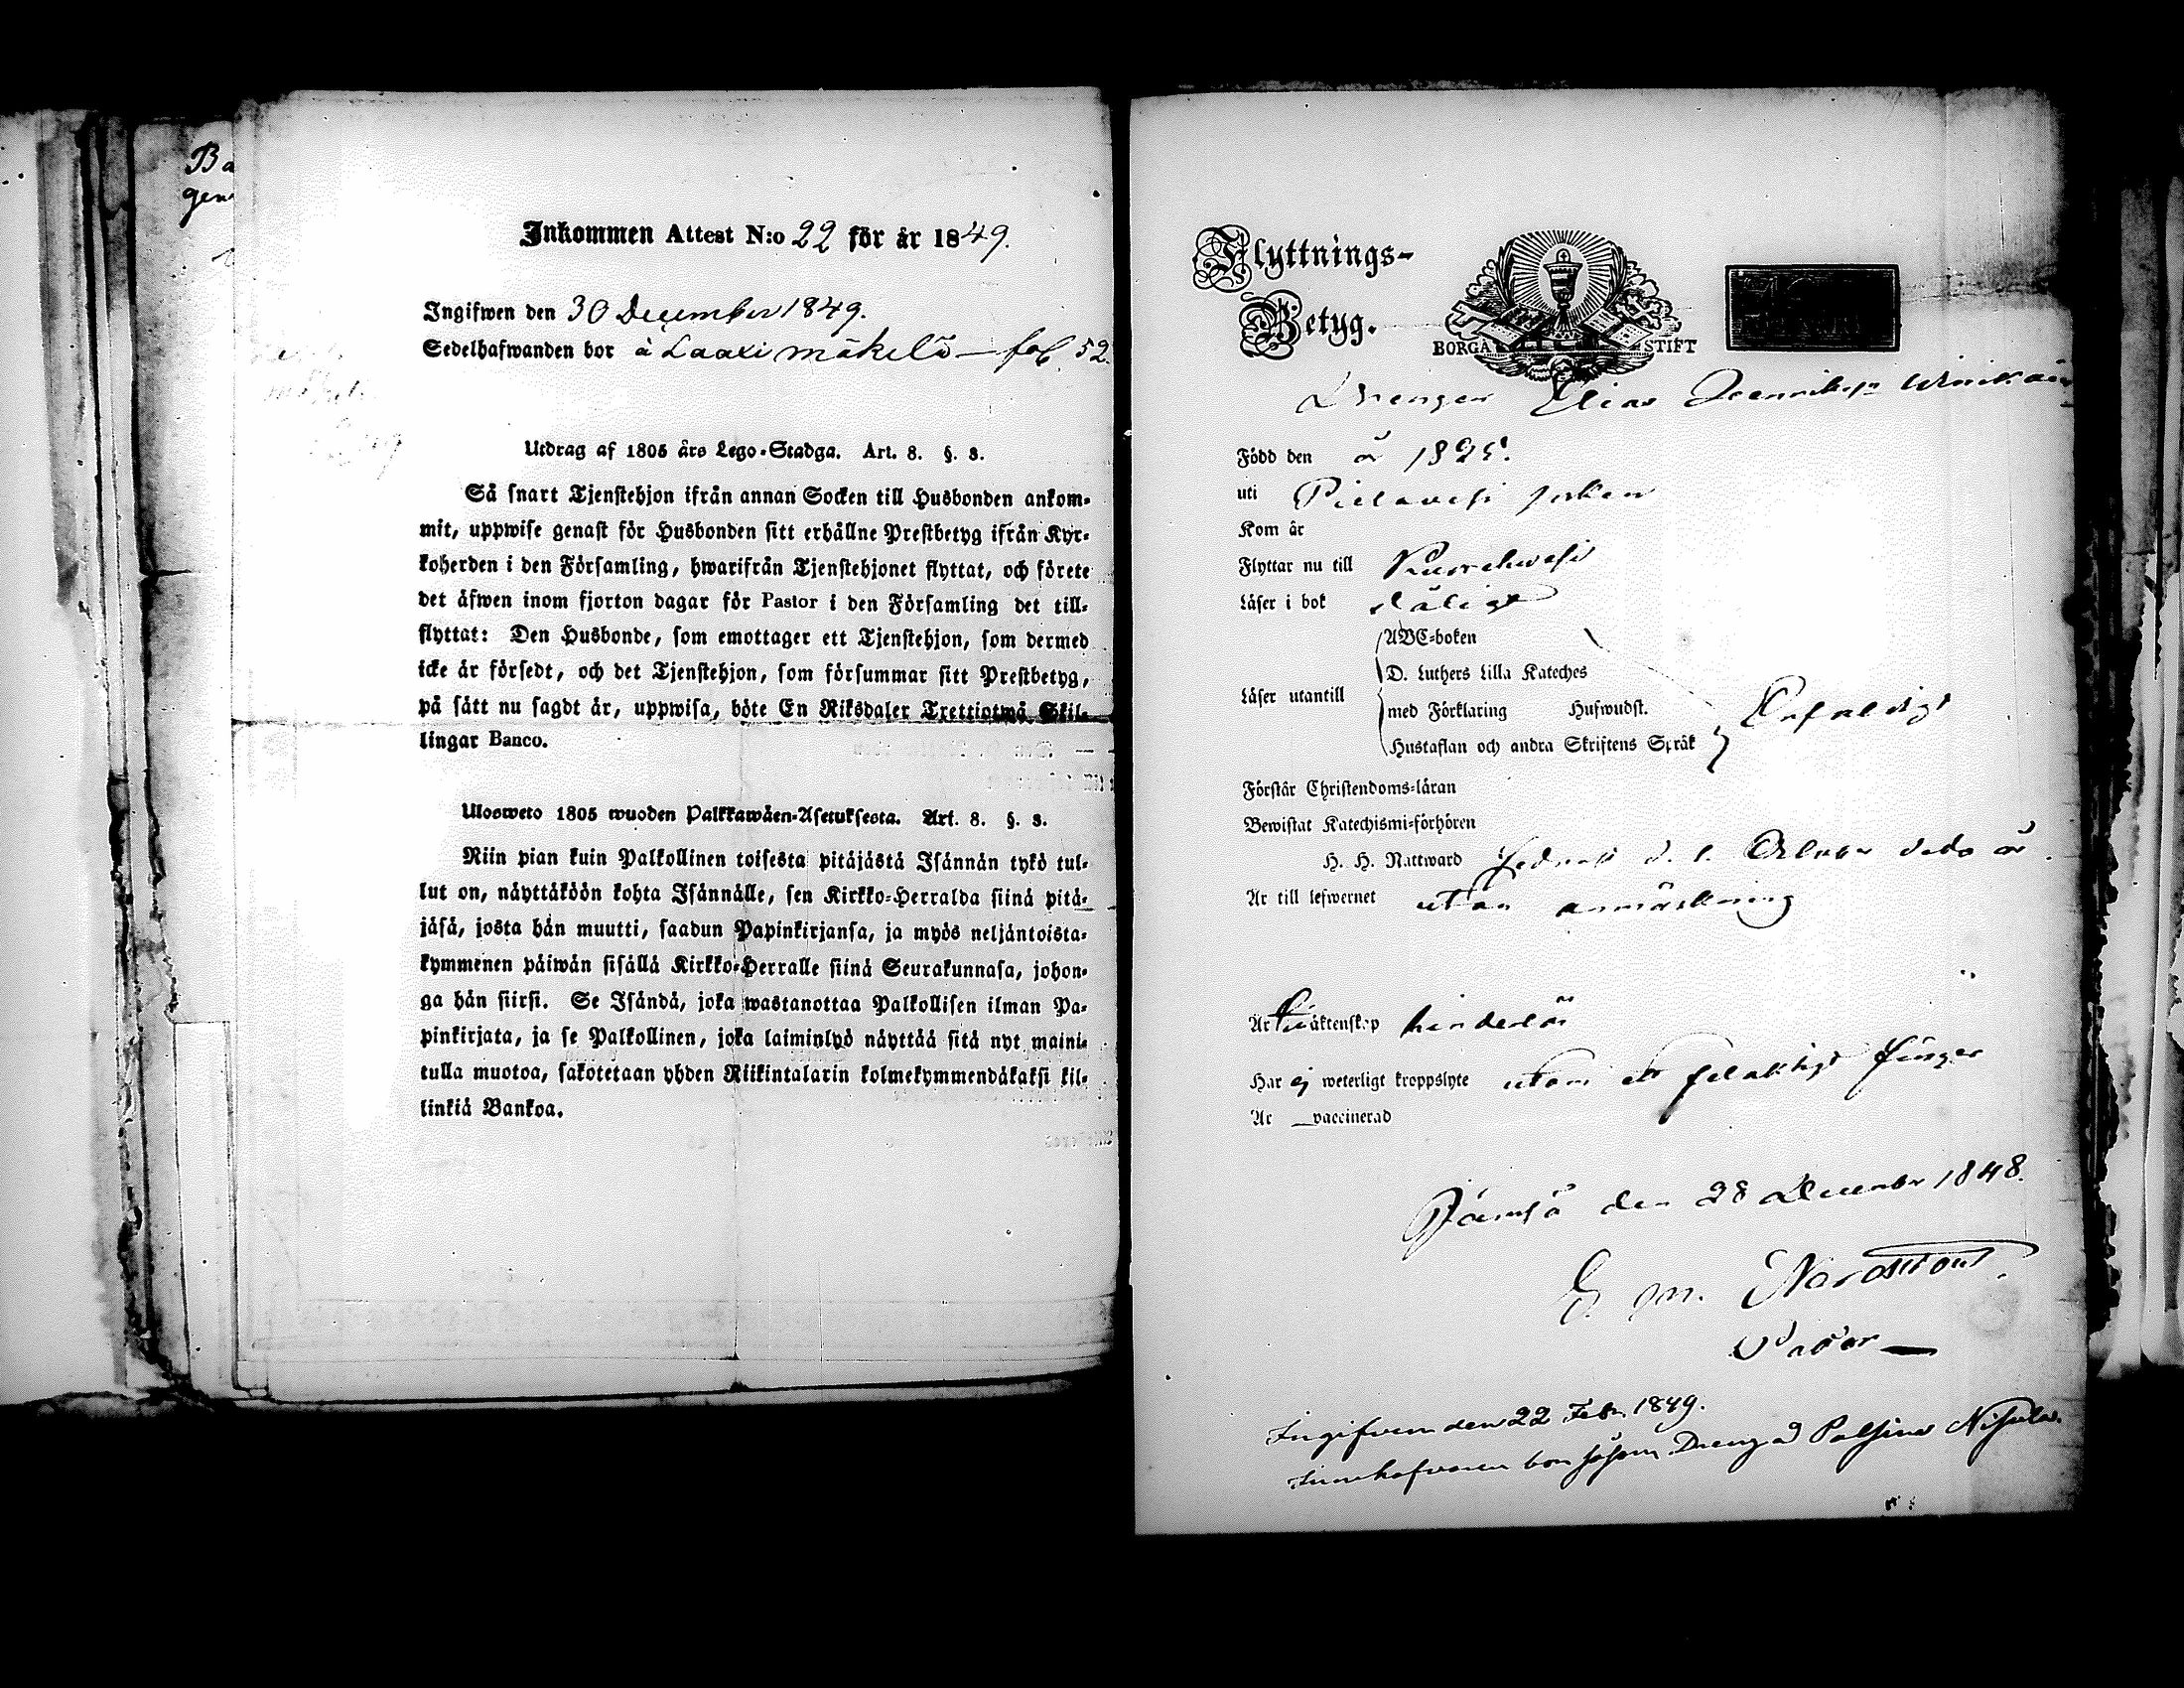 Ba
gen
Inkommen Attest N:o 22 för år 1849.
Ingifwen den 30 December 1849.
Sedelhafwanden bor å Laaxi mäkelä — fol. 52.
Utdrag af 1805 års Lego-Stadga. Art. 8. §. 8.
Så snart Tjenstehjon ifrån annan Socken till Husbonden ankom-
mit, uppwise genast för Husbonden sitt erhållne Prestbetyg ifrån Kyr-
koherden i den Församling, hwarifrån Tjenstehjonet flyttat, och förete
det äfwen inom fjorton dagar för Pastor i den Församling det till-
flyttat: Den Husbonde, som emottager ett Tjenstehjon, som dermed
icke är försedt, och det Tjenstehjon, som försummar sitt Prestbetyg,
på sätt nu sagdt är, uppwisa, böte En Riksdaler Trettiotwå Skil-
lingar Banco.
Ulosweto 1805 wuoden Palkkawäen-Asetuksesta. Art. 8. §. 8.
Niin pian kuin Palkollinen toisesta pitäjästä Isännän tykö tul-
lut on, näyttäköön kohta Isännälle, sen Kirkko-Herralda siinä pitä-
jäsä, josta hän muutti, saadun Papinkirjansa, ja myös neljäntoista-
kymmenen päiwän sisällä Kirkko-Herralle siinä Seurakunnasa, johon-
ga hän siirsi. Se Isändä, joka wastanottaa Palkollisen ilman Pa-
pinkirjata, ja se Palkollinen, joka laiminlyö näyttää sitä nyt maini-
tulla muotoa, sakotetaan yhden Riikintalarin kolmekymmendäkaksi kil-
linkiä Bankoa.
Flyttnings-
Betyg.
BORGÅ STIFT
Drengen Elias Henriksn
Född den år 1825.
uti Pielavesi socken
Kom år
Flyttar nu till Kuorehvesi
Läser i bok dåligt
ABC-boken
D. Luthers Lilla Kateches
Läser utantill
med Förklaring Hufwudst.
Hustaflan och andra Skriftens Språk
Förstår Christendoms-läran
Bewistat Katechismi-förhören
H. H. Nattward sednast d. October år
Är till lefwernet utan anmärkning
Är till äktenskap hinderlös
Har ej weterligt kroppslyte utom ett felaktigt finger
Är vaccinerad
Jämsä den 28 December 1848.
E. M. Nordström
Pastor
Ingifven den 22 Feb. 1849.
Innehafvaren bor såsom Dreng å Palsina Nisula.